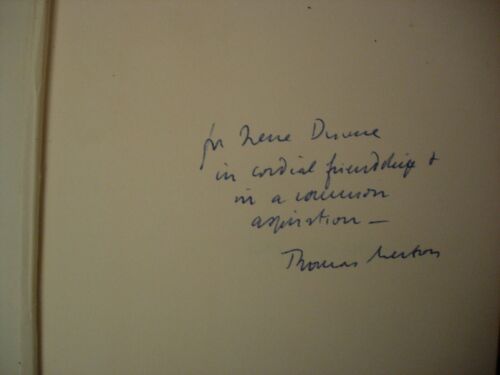 for Irene Disune
in cordial friendship &
in a common
aspiration —
Thomas Merton